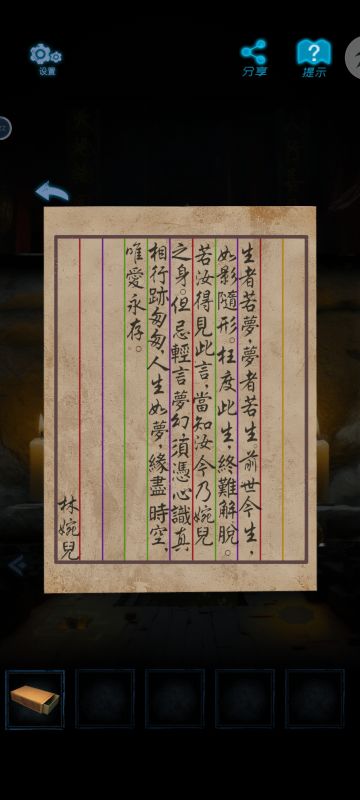 设置
分享
提示
生者若夢，夢者若生，前世今生，
如影隨形。枉度此生，終難解脫。
若汝得見此言，當知汝今乃婉兒
之身。但忌輕言夢幻，須憑心識真
相。行跡匆匆，人生如夢，緣盡時空，
唯愛永存。
林婉兒